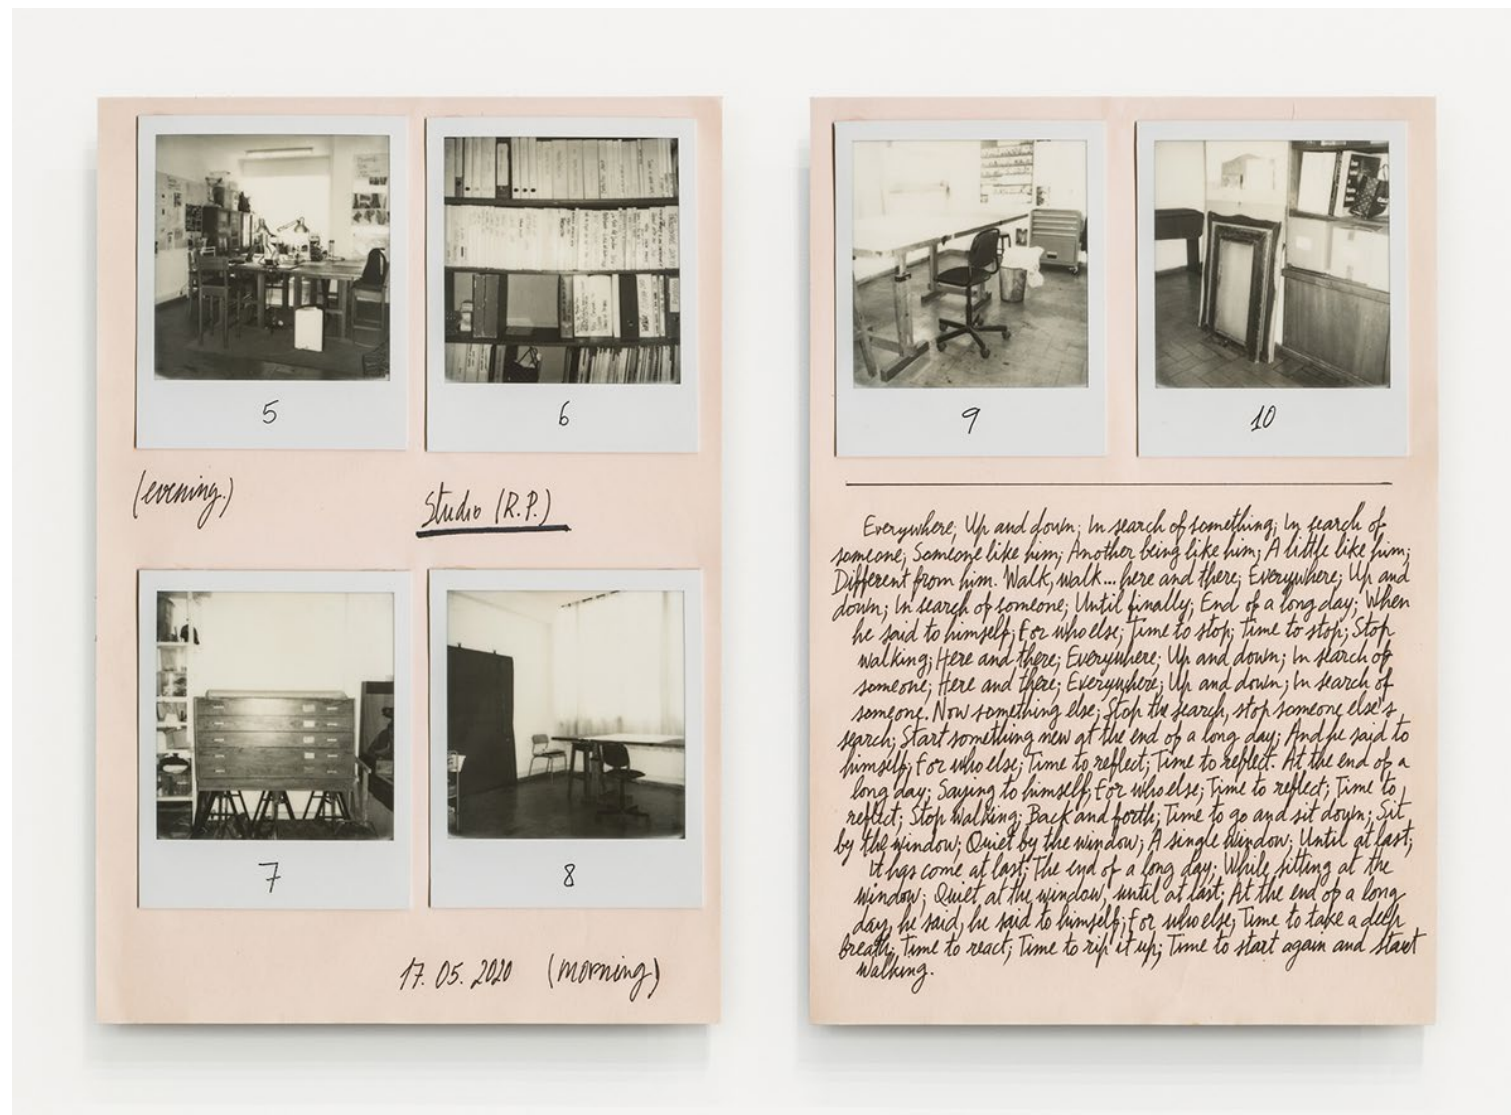 5
6
(evening.)
Studio (R.P.)
7
8
17.05.2020 (morning)
9
10
Everywhere; Up and down; In search of something; In search of
someone; Someone like him; Another being like him; A little like him;
Different from him. Walk, walk... here and there; Everywhere; Up and
down; In search of someone; Until finally; End of a long day; When
he said to himself; For who else; Time to stop; Time to stop; Stop
walking; Here and there; Everywhere; Up and down; In search of
someone; Here and there; Everywhere; Up and down; In search of
someone. Now something else; Stop the search, stop someone else's
search; Start something new at the end of a long day; And he said to
himself; For who else; Time to reflect; Time to reflect. At the end of a
long day; Saying to himself; For who else; Time to reflect; Time to
reflect; Stop walking; Back and forth; Time to go and sit down; Sit
by the window; Quiet by the window; A single window; Until at last;
It has come at last; The end of a long day; While sitting at the
window; Quiet at the window, until at last; At the end of a long
day, he said, he said to himself; For who else, Time to take a deep
breath; Time to react; Time to rip it up; Time to start again and start
walking.